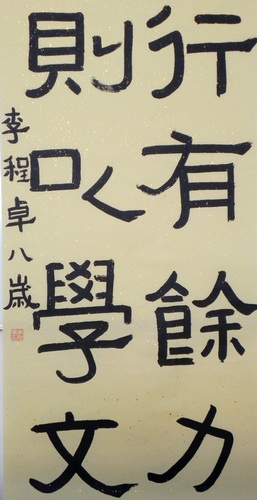 行有餘力
則以學文
李程卓八歲